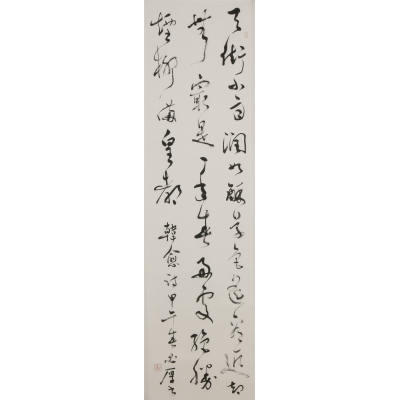 天街小雨潤如酥草色遥看近却
無最是一年春好處絕勝
煙柳滿皇都 韓愈詩甲午春